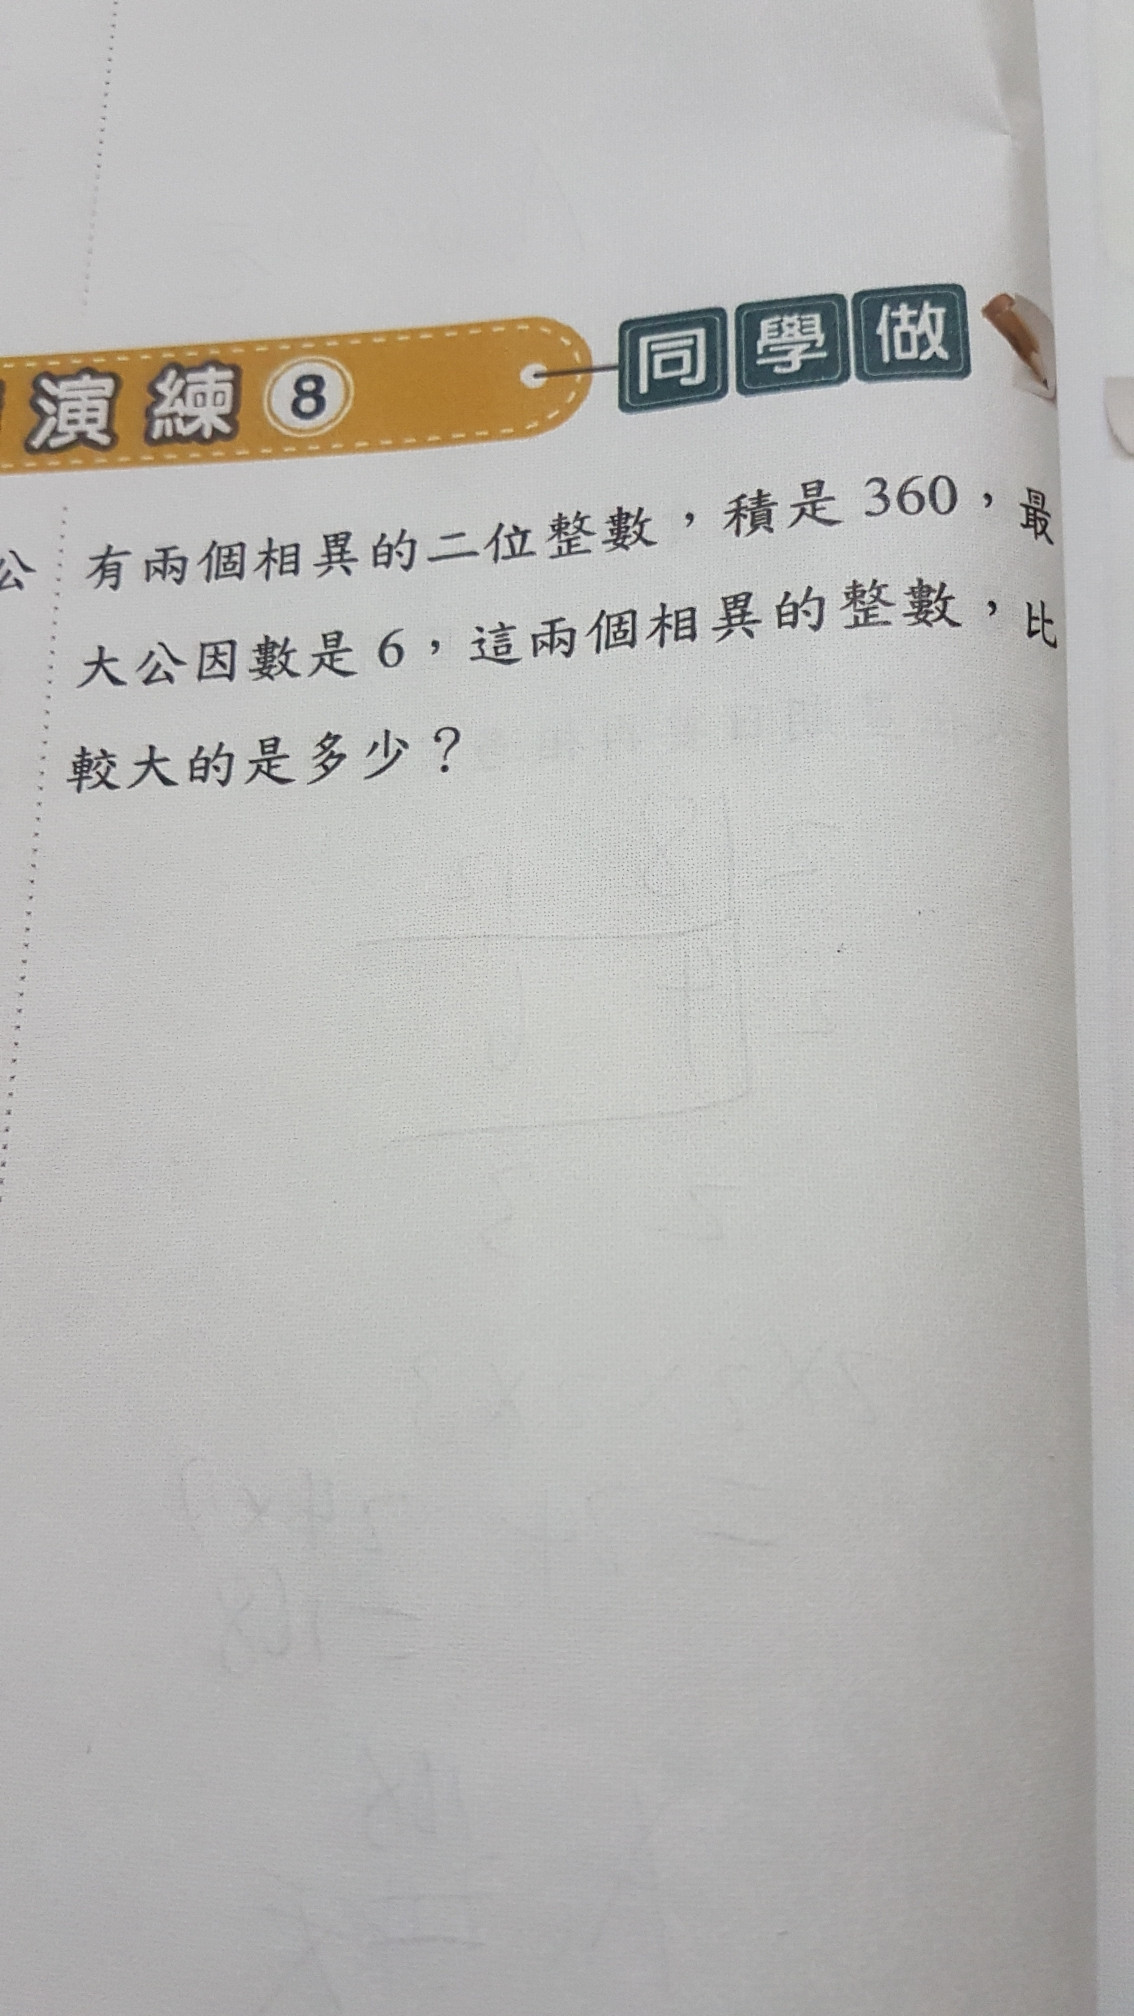 演練8 同學做
公
有兩個相異的二位整數，積是360，最
大公因數是6，這兩個相異的整數，比
較大的是多少？